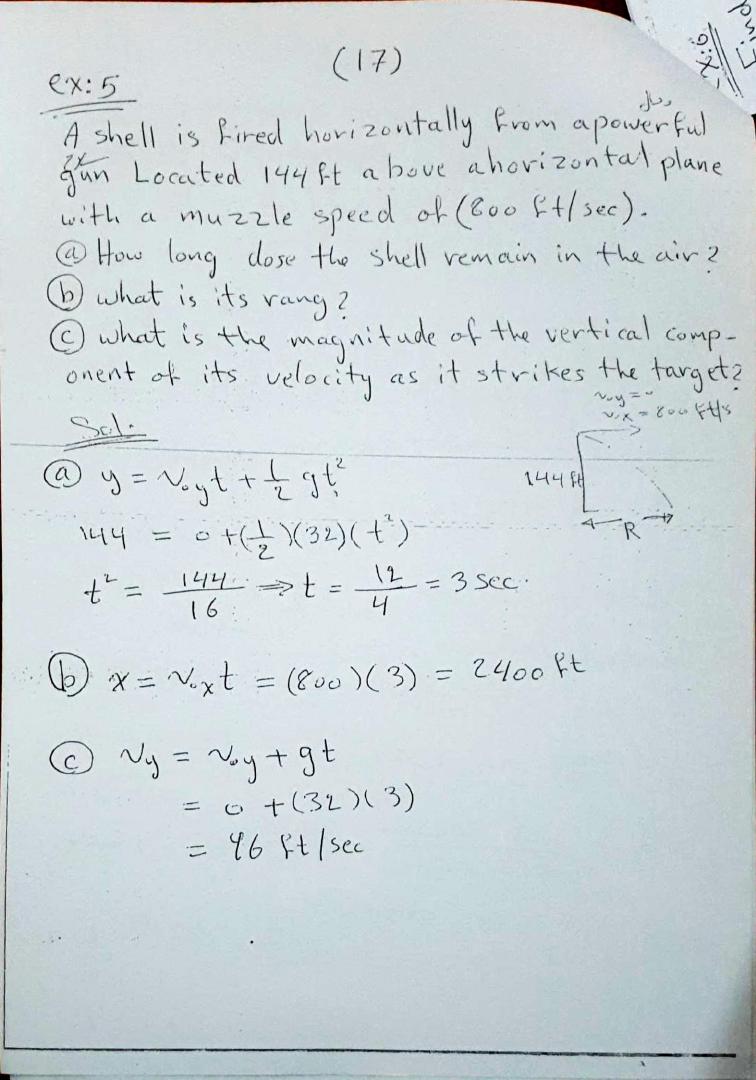 (17)
ex: 5
A shell is fired horizontally from a powerful
gun Located 144 ft above a horizontal plane
with a muzzle speed of (800 ft/sec).
ⓐ How long dose the shell remain in the air?
ⓑ what is its rang?
ⓒ what is the magnitude of the vertical comp-
onent of its velocity as it strikes the target?
Sol.
v₀y = 0
v₀x = 800 ft/s
144 ft
R
ⓐ y = v₀yt + 1/2 gt²
144 = 0 + (1/2)(32)(t²)
t² = 144/16 ⇒ t = 12/4 = 3 sec.
ⓑ x = v₀xt = (800)(3) = 2400 ft
ⓒ vy = v₀y + gt
= 0 + (32)(3)
= 96 ft/sec